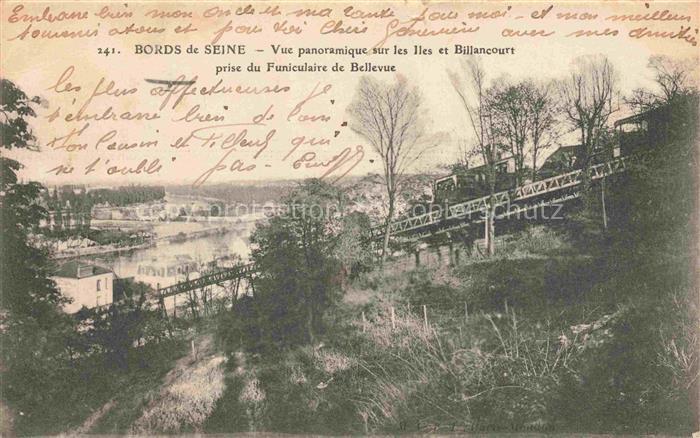 Embrasse bien mon oncle et ma tante pour moi - et mon meilleur
souvenir à vous et pour toi Chère Geneviève avec mes amitiés
241. BORDS de SEINE — Vue panoramique sur les Iles et Billancourt
prise du Funiculaire de Bellevue
Les plus affectueuses Je
t'embrasse bien de loin
Ton Cousin et qui
ne t'oublie pas.
copyright-protection Kopierschutz